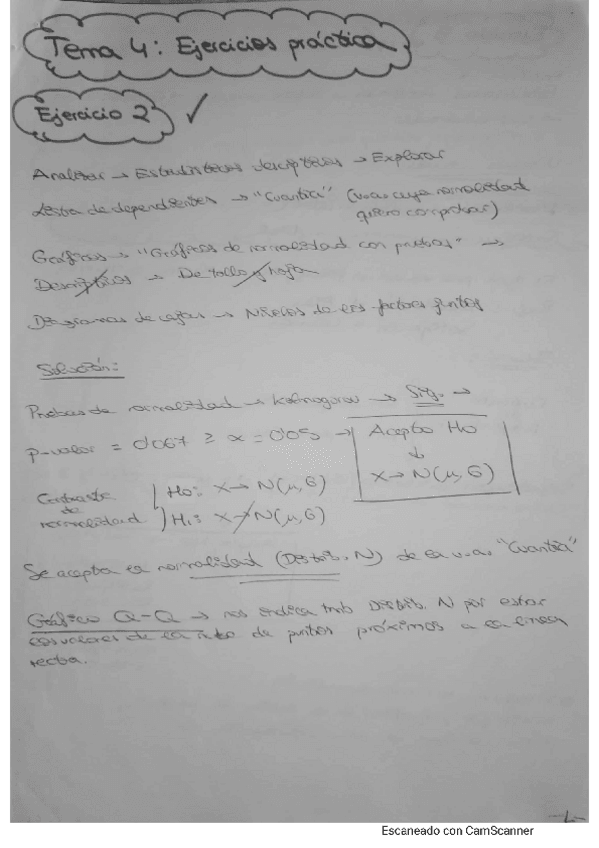 Tema 4: Ejercicios práctica
Ejercicio 2 ✓
Analizar → Estadísticos descriptivos → Explorar
Lista de dependientes → "Cuantía" (v.a. cuya normalidad
quiero comprobar)
Gráficos → "Gráficos de normalidad con pruebas" →
Descriptivos → De tallo y hojas
Diagramas de cajas → Niveles de los factores juntos
Solución:
Pruebas de normalidad → Kolmogorov → Sig. →
p-valor = 0'067 ≥ α = 0'05 → Acepto Ho
↓
X → N(μ, σ)
Contraste de normalidad
Ho: X → N(μ, σ)
H1: X ↛ N(μ, σ)
Se acepta la normalidad (Distrib. N) de la v.a. "Cuantía"
Gráfico Q-Q → nos indica tmb Distrib. N por estar
los valores de la nube de puntos próximos a la línea
recta.
-1-
Escaneado con CamScanner